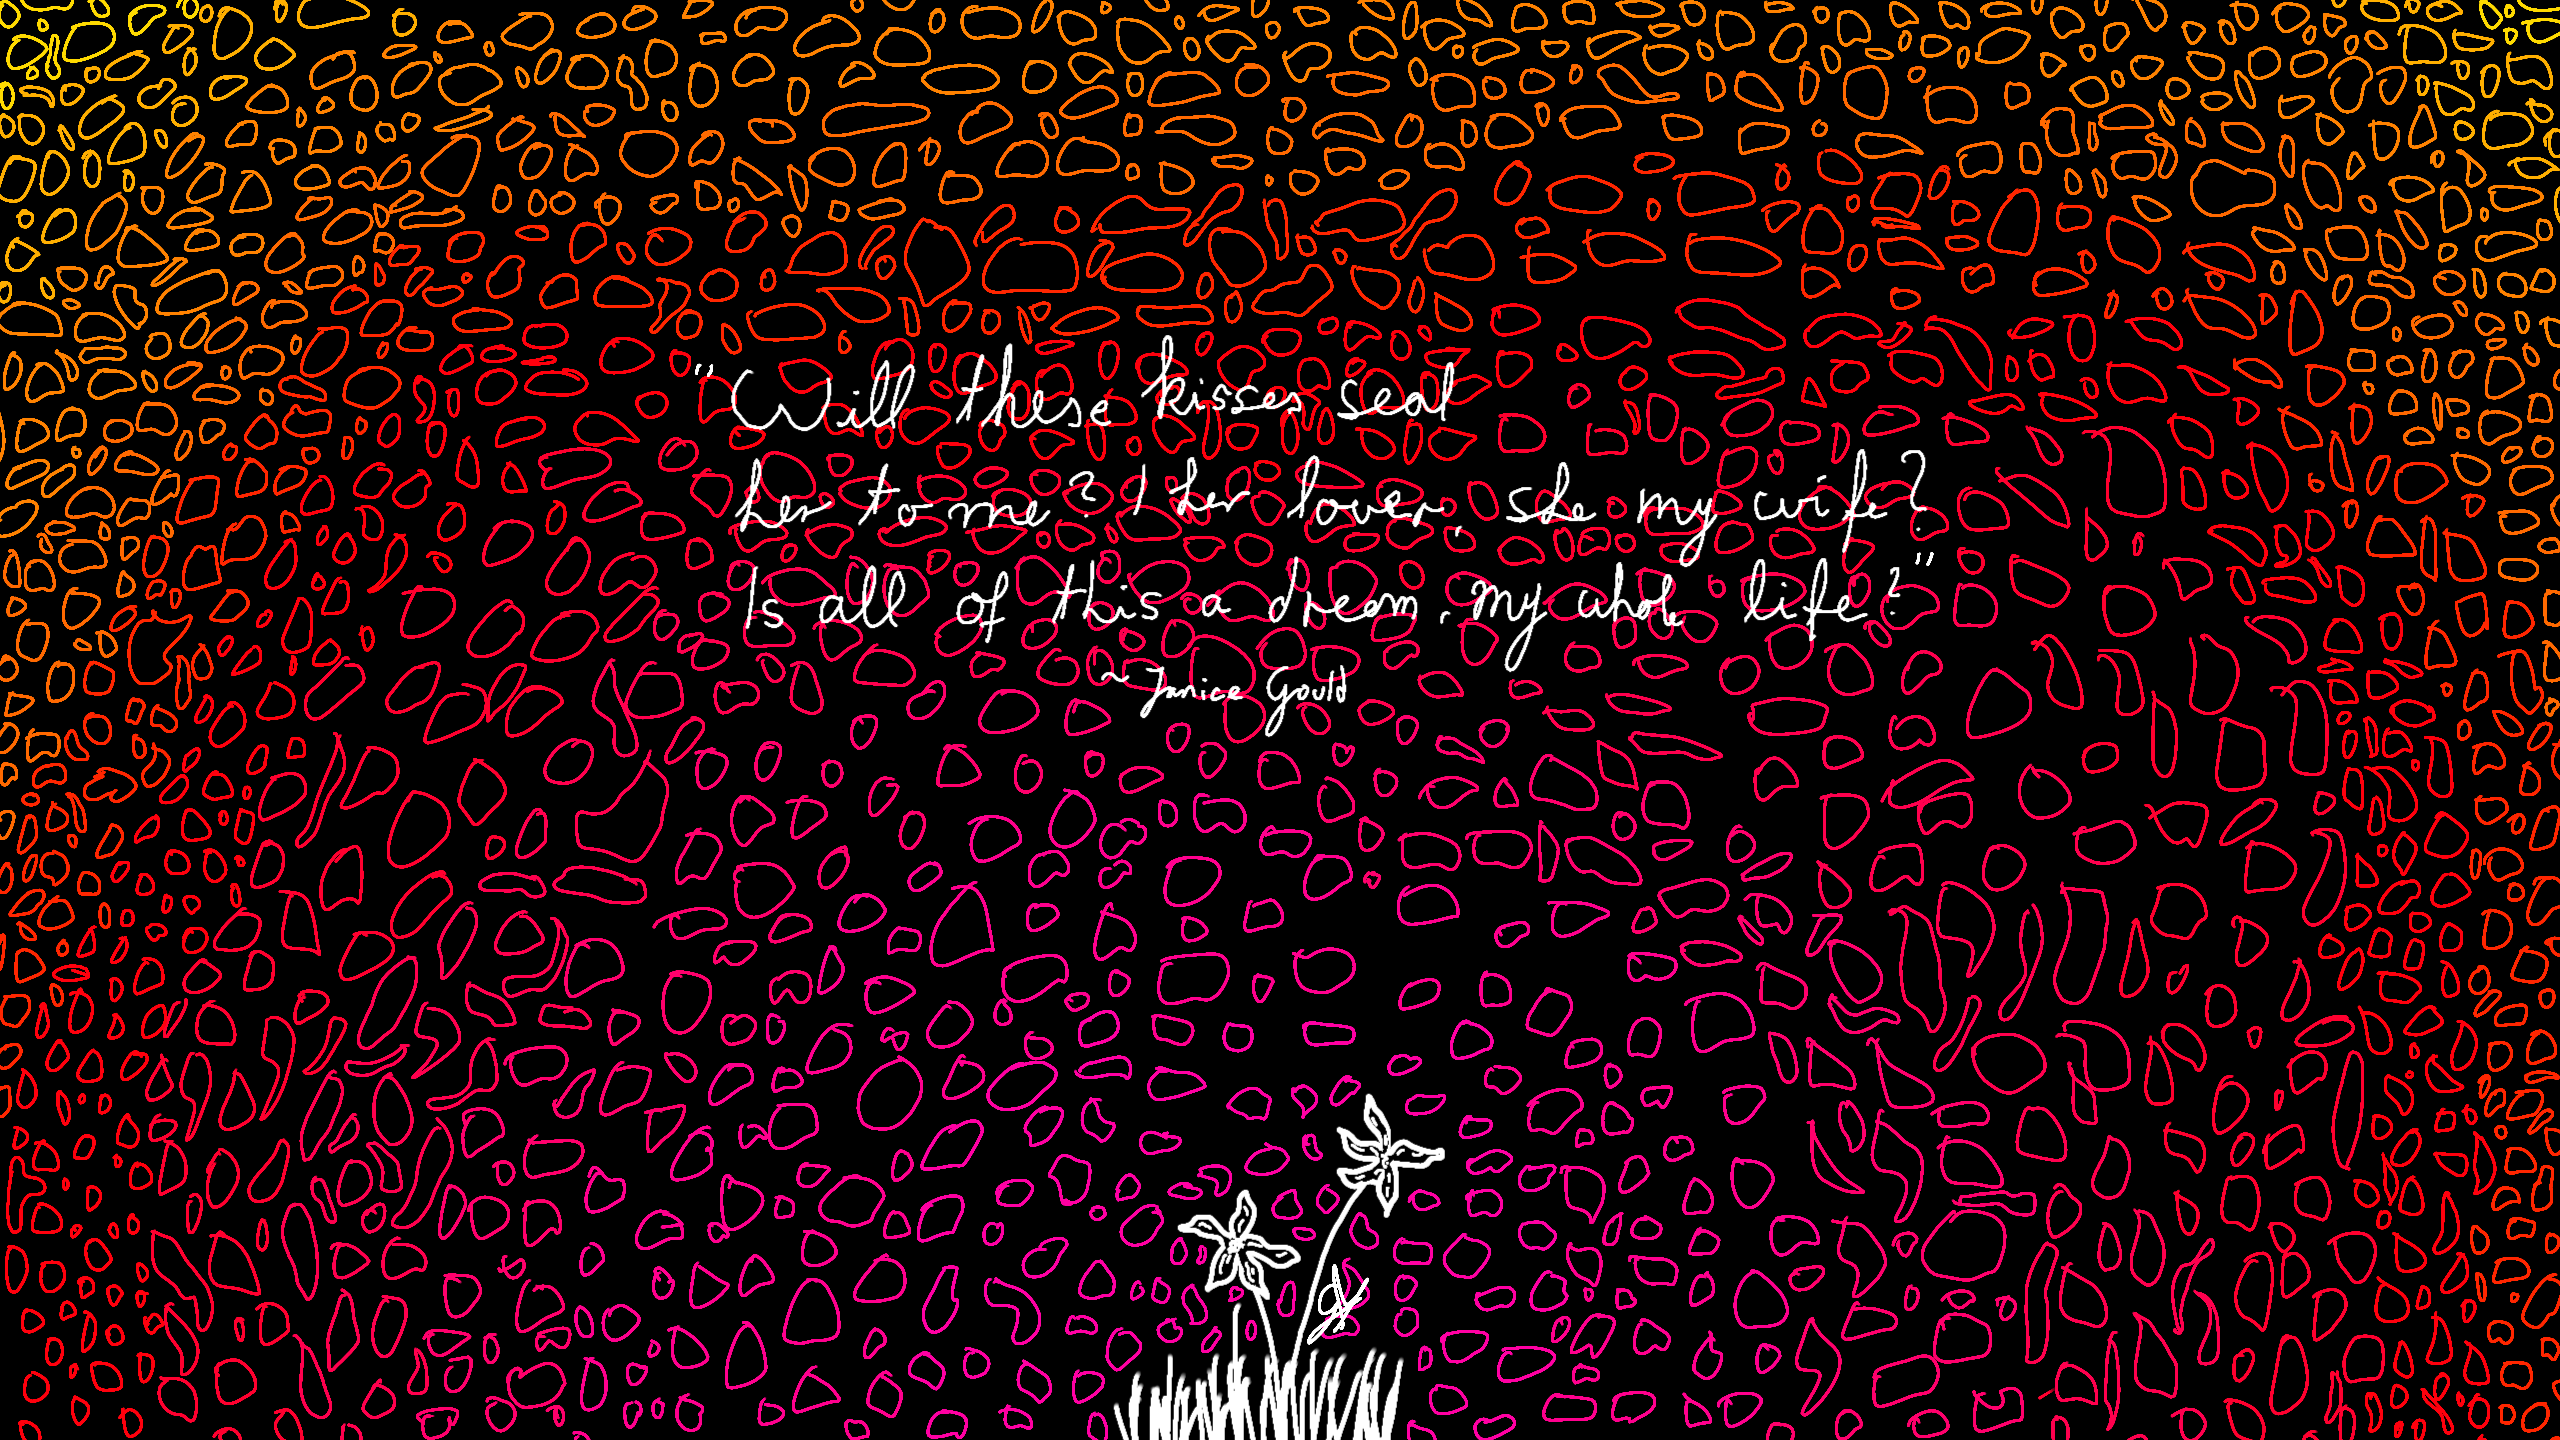 "Will these kisses seal
her to me? I her lover, she my wife?
Is all of this a dream, my whole life?"
~ Janice Gould